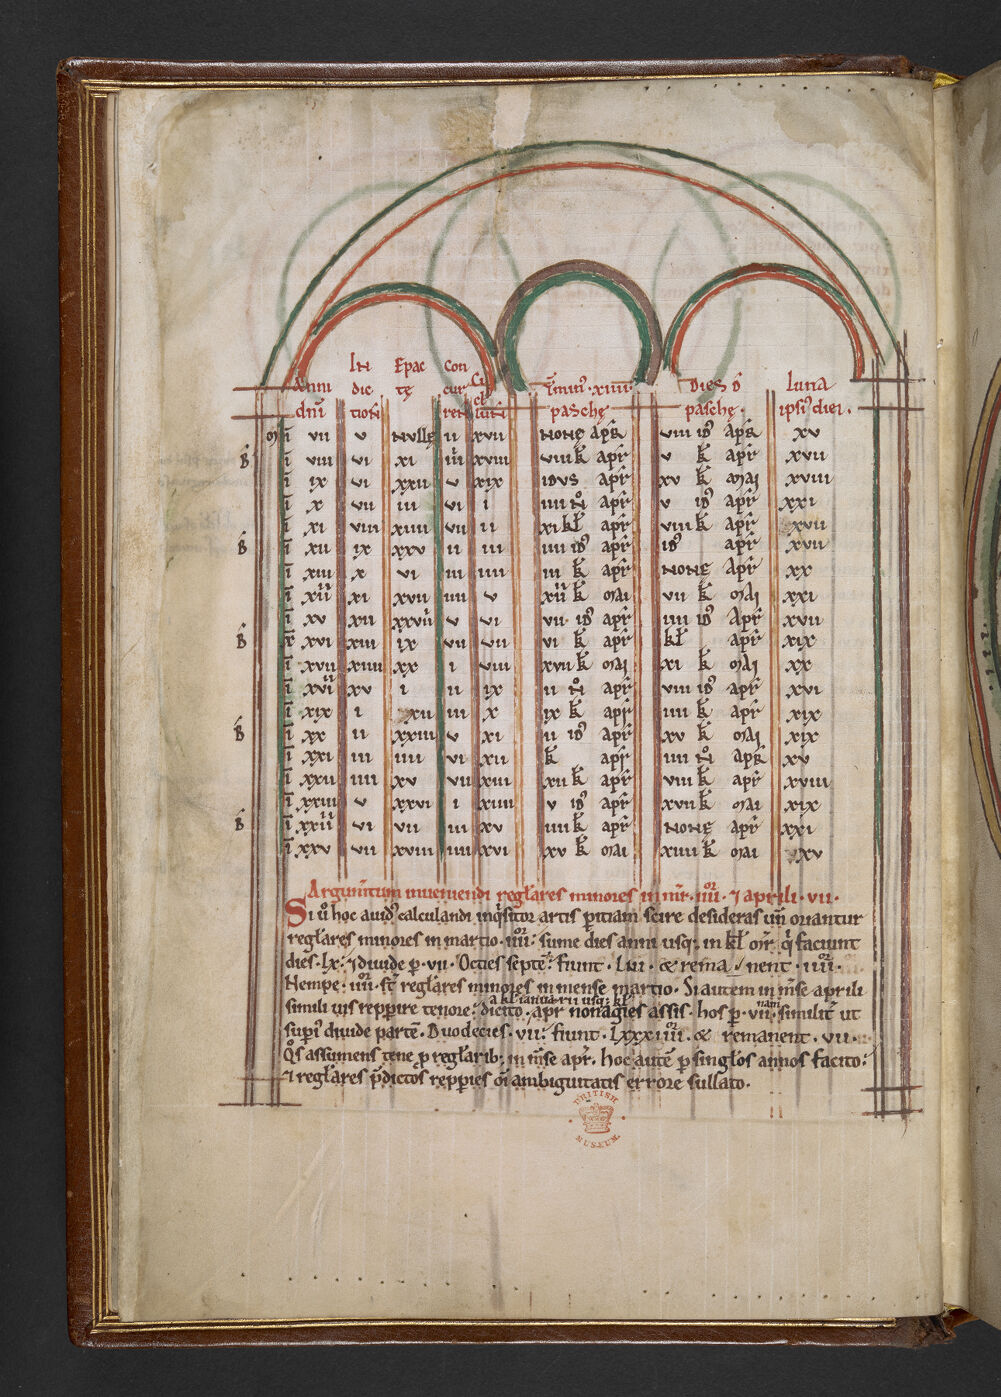 Anni dñi IN dic tioñ Epac tę Con cur ren Ci cl' luñ Tmin' xiiii pasche Dies d' pasche Luna ipsi' diei
ī vii v nvllę ii xvii nonę apr viii id' apr xv
B ī viii vi xi iii xviii viii k apr v k apr xvii
ī ix vi xxii v xix idvs apr xv k mai xviii
ī x vii iii vi i iiii ñ apr v id' apr xxi
ī xi viii xiiii vii ii xi kł apr viii k apr xvii
B ī xii ix xxv ii iii iiii id' apr id' apr xvii
ī xiii x vi iii iiii iii k apr nonę apr xx
ī xiiii xi xvii iiii v xiiii k mai vii k mai xxi
ī xv xii xxviii v vi vii id' apr iiii id' apr xvii
B ī xvi xiii ix vii vii vi k apr kł apr xix
ī xvii xiiii xx i viii xvii k mai xi k mai xx
ī xviii xv i ii ix ii ñ apr viii id' apr xvi
ī xix i xii iii x ix k apr iiii k apr xix
B ī xx ii xxiii v xi ii id' apr xv k mai xix
ī xxi iii iiii vi xii k apr iiii ñ apr xv
ī xxii iiii xv vii xiii xii k apr viii k apr xviii
ī xxiii v xxvi i xiiii v id' apr xvii k mai xix
B ī xxiiii vi vii iii xv iiii k apr nonę apr xxi
ī xxv vii xviii iiii xvi xv k mai xiiii k mai xv
Argumtum inueniendi regłares minores in mr. iiii or. ⁊ aprili. vii.
Si u hoc auid' calculandi inqsitor artis pitiam scire desideras un oriantur
regłares minores in martio. iiii or: sume dies anni usq: in kł mr. q faciunt
dies. lx: ⁊ diuide p. vii. Octies septe: fiunt. Lvi. & rema nent. iiii or.
Nempe: iiii or. st regłares minores in mense martio. Si autem in mse aprili
a kł ianuarii usq: kł
simili uis repperire tenore: dicito. apr nonagies assis. hos p. vii nam. similit ut
sup diuide parte. Duodecies. vii: fiunt. Lxxxiiii or. & remanent. vii.
Qs assumens tene p regłarib: in mse apr. hoc aute p singłos annos facito:
⁊ regłares pdictos repperies oi ambiguitatis errore sullato.
BRITISH
MUSEUM